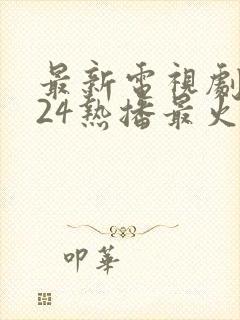 最新電視劇
24热播最火
叩華